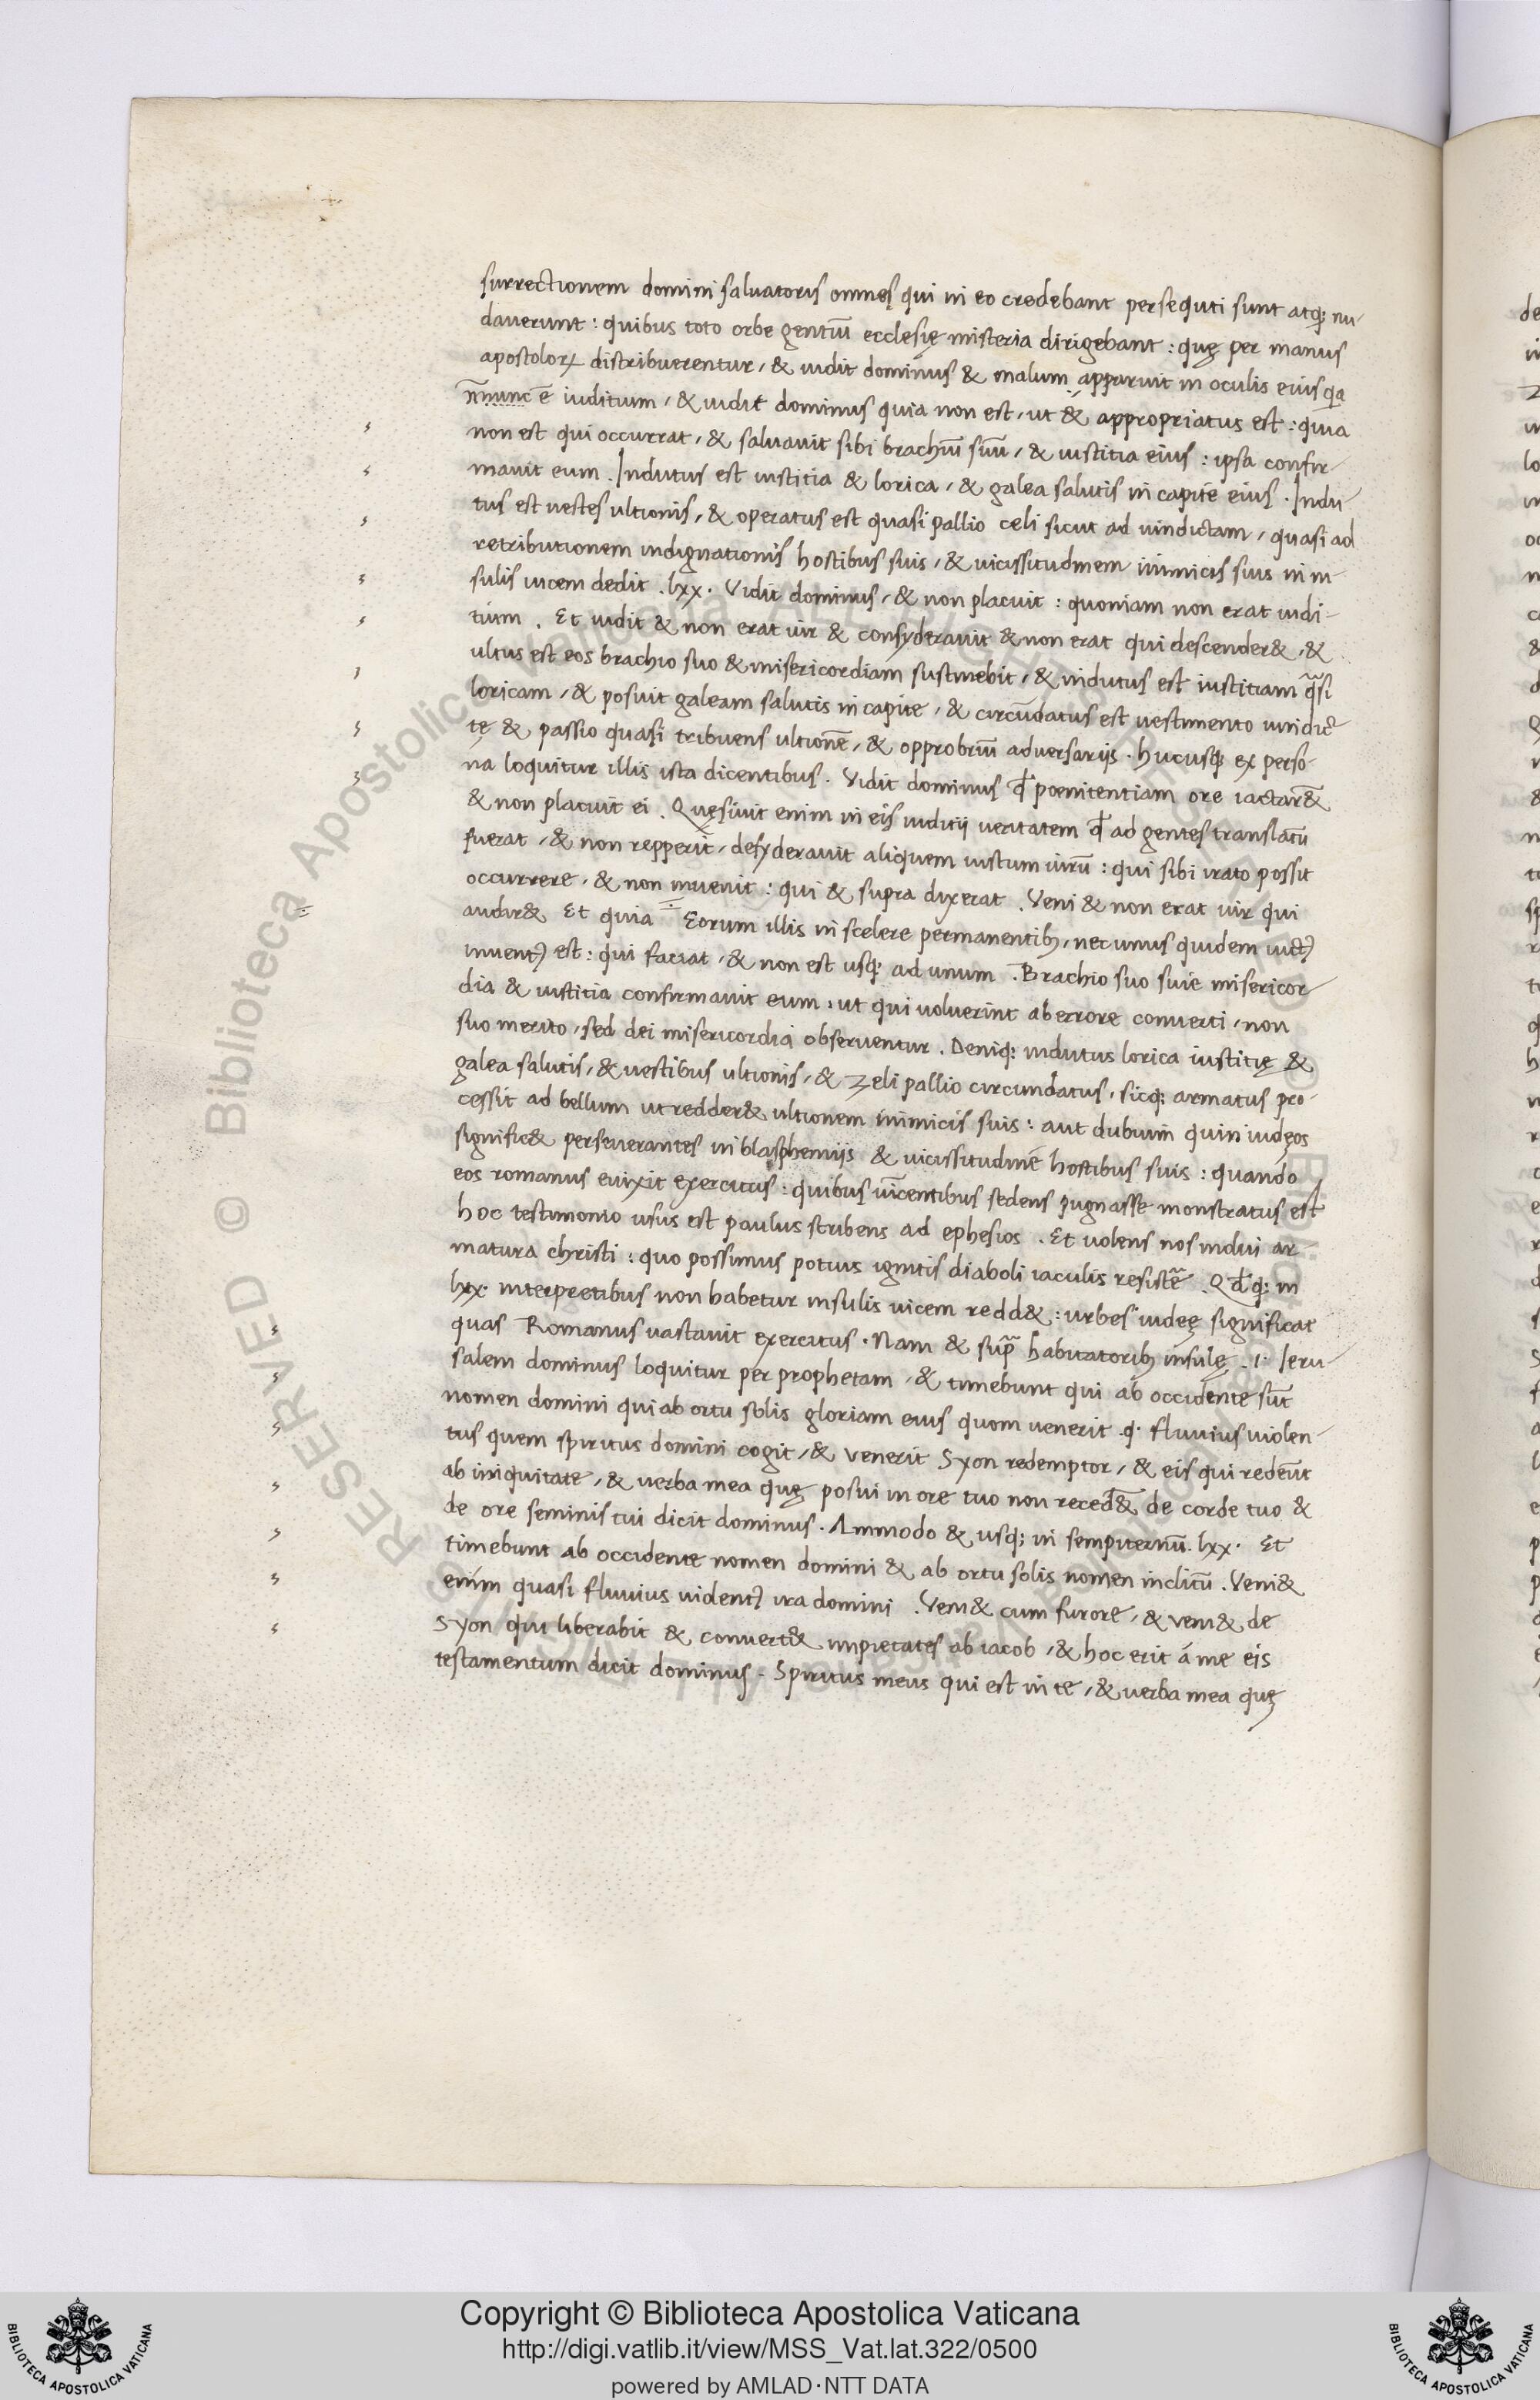 surrectionem domini saluatoris omnes qui in eo credebant persequti sunt atq; nu-
dauerunt : quibus toto orbe gentiū ecclesię misteria dirigebant : quę per manus
apostoloꝝ distribuerentur, & uidit dominus & malum apparuit in oculis eius
iuditium, & uidit dominus quia non est, ut & appropriatus est : quia
non est qui occurrat, & saluauit sibi brachiū suū, & iustitia eius : ipsa confir-
mauit eum. Indutus est iustitia & lorica, & galea salutis in capite eius. Indu-
tus est uestes ultionis, & operatus est quasi pallio celi sicut ad uindictam, quasi ad
retributionem indignationis hostibus suis, & uicissitudinem inimicis suis in in-
sulis uicem dedit. lxx. Vidit dominus, & non placuit : quoniam non erat iudi-
tium. Et uidit & non erat uir & consyderauit & non erat qui descender&, &
ultus est eos brachio suo & misericordiam sustinebit, & indutus est iustitiam q̄si
loricam, & posuit galeam salutis in capite, & circūdatus est uestimento uindic-
tę & passio quasi tribuens ultionē, & opprobriū aduersarijs. hucusq; ex perso-
na loquitur illis ista dicentibus. Vidit dominus qđ poenitentiam ore iactar&
& non placuit ei. Quęsiuit enim in eis iuditij ueritatem qđ ad gentes translatū
fuerat, & non repperit, desyderauit aliquem iustum uirū : qui sibi irato possit
occurrere, & non inuenit : qui & supra dixerat. Veni & non erat uir qui
audir& Et quia Eorum illis in scelere permanentibꝫ, nec unus quidem
est : qui faciat, & non est usq; ad unum. Brachio suo suie misericor-
dia & iustitia confirmauit eum, ut qui uoluerint ab errore conuerti, non
suo merito, sed dei misericordia obseruentur. Deniq; indutus lorica iustitię &
galea salutis, & uestibus ultionis, & zeli pallio circundatus, sicq; armatus pro-
cessit ad bellum ut redder& ultionem inimicis suis : aut dubium quin iudęos
signific& perseuerantes in blasphemijs & uicissitudinē hostibus suis : quando
eos romanus euixit exercitus : quibus uīcentibus sedens pugnasse monstratus est
hoc testimonio usus est paulus scribens ad ephesios. Et uolens nos indui ar-
matura christi : quo possimus potius ignitis diaboli iaculis resistē. Qđq; in
lxx. interpretibus non habetur insulis uicem redd& : urbes iudeę significat
quas Romanus uastauit exercitus. Nam & sup̄ habitatoribꝫ insulę .i. Ieru-
salem dominus loquitur per prophetam, & timebunt qui ab occidente sūt
nomen domini qui ab ortu solis gloriam eius quom uenerit .q. fluuius uiolen-
tus quem spiritus domini cogit, & venerit Syon redemptor, & eis qui redeūt
ab iniquitate, & uerba mea quę posui in ore tuo non reced& de corde tuo &
de ore seminis tui dicit dominus. Ammodo & usq; in sempiternū. lxx. Et
timebunt ab occidente nomen domini & ab ortu solis nomen inclitū. Veni&
enim quasi fluuius uident ira domini. Veni& cum furore, & veni& de
Syon qui liberabit & conuert& impietates ab iacob, & hoc erit á me eis
testamentum dicit dominus. Spiritus meus qui est in te, & uerba mea quę
Copyright © Biblioteca Apostolica Vaticana
http://digi.vatlib.it/view/MSS_Vat.lat.322/0500
powered by AMLAD·NTT DATA